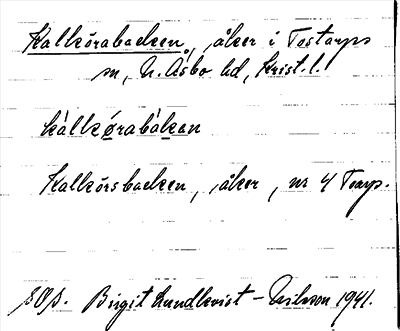 Kalkörabacken, åker i Tostarps
sn, N. Åsbo hd, Krist. l.
kàlkørabàken
Kalkörsbacken, åker, nr 4 Toarp.
Birgit Lundkvist-Nilsson 1941.